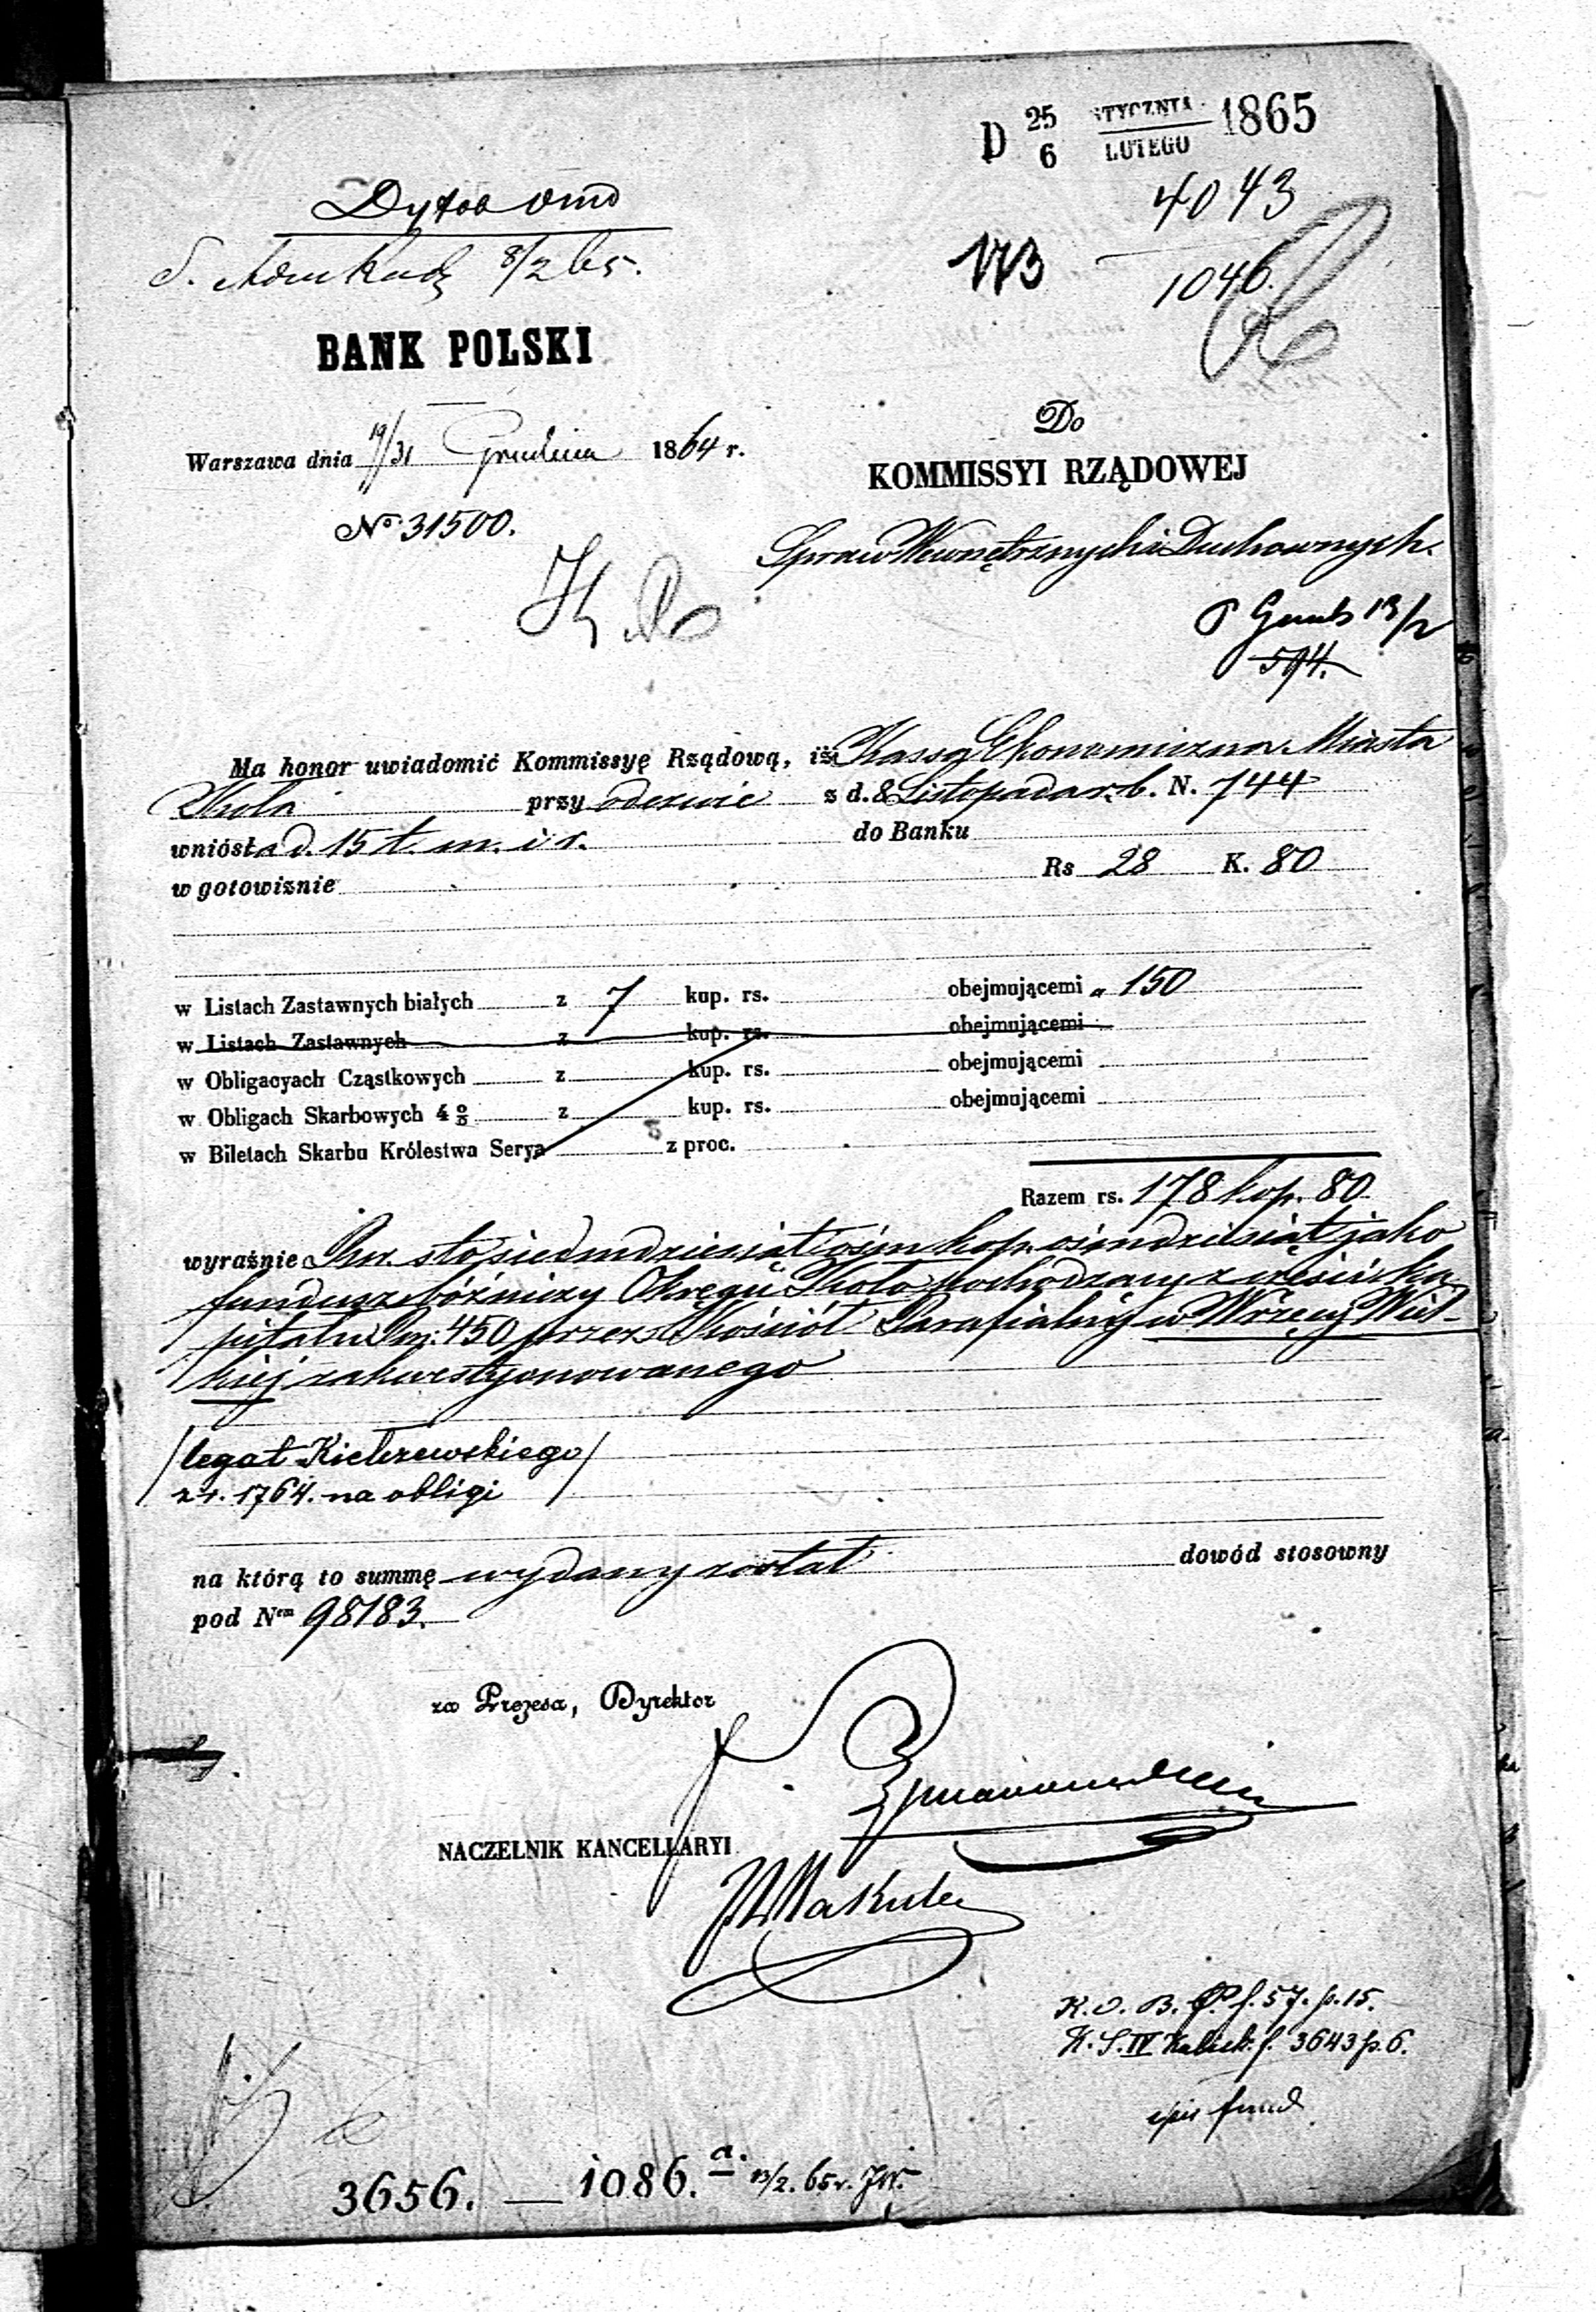 D 25/6 STYCZNIA/LUTEGO 1865
4043
173
1046.
8/2 65.
BANK POLSKI
Warszawa dnia 19/31 Grudnia 1864 r.
No 31500.
Do
KOMMISSYI RZĄDOWEJ
Spraw Wewnętrznych i Duchownych.
13/2
594.
Ma honor uwiadomić Kommissyę Rządową, iż Kassa Ekonomiczna Miasta
Koła przy odezwie z d. 8 Listopada r. b. N. 744
wniósła d. 15 t. m. i r. do Banku
w gotowiznie Rs 28 K. 80
w Listach Zastawnych białych z 7 kup. rs. obejmującemi „ 150
w Listach Zastawnych z kup. rs. obejmującemi
w Obligacyach Cząstkowych z kup. rs. obejmującemi
w Obligach Skarbowych 4 % z kup. rs. obejmującemi
w Biletach Skarbu Królestwa Serya z proc.
Razem rs. 178 kop. 80
wyraźnie Rsr. sto siedmdziesiąt ośm kop. ośmdziesiąt jako
fundusz bóźniczy Okręgu Koło pochodzący z części ka
pitału Rsr. 450 przez Kościół Parafialny w Wrzący Wiel-
kiej zakwestyonowanego
/legat Kiełczewskiego/
z r. 1764. na obligi
na którą to summę wydany został dowód stosowny
pod Nem 98183.
za Prezesa, Dyrektor
NACZELNIK KANCELLARYI
J. Makulec
K. O. B. P. f. 57. p. 15.
K. S. IV Kalisk. f. 3643 p. 6.
fund
3656. — 1086. a. 13/2. 65 r. JW.